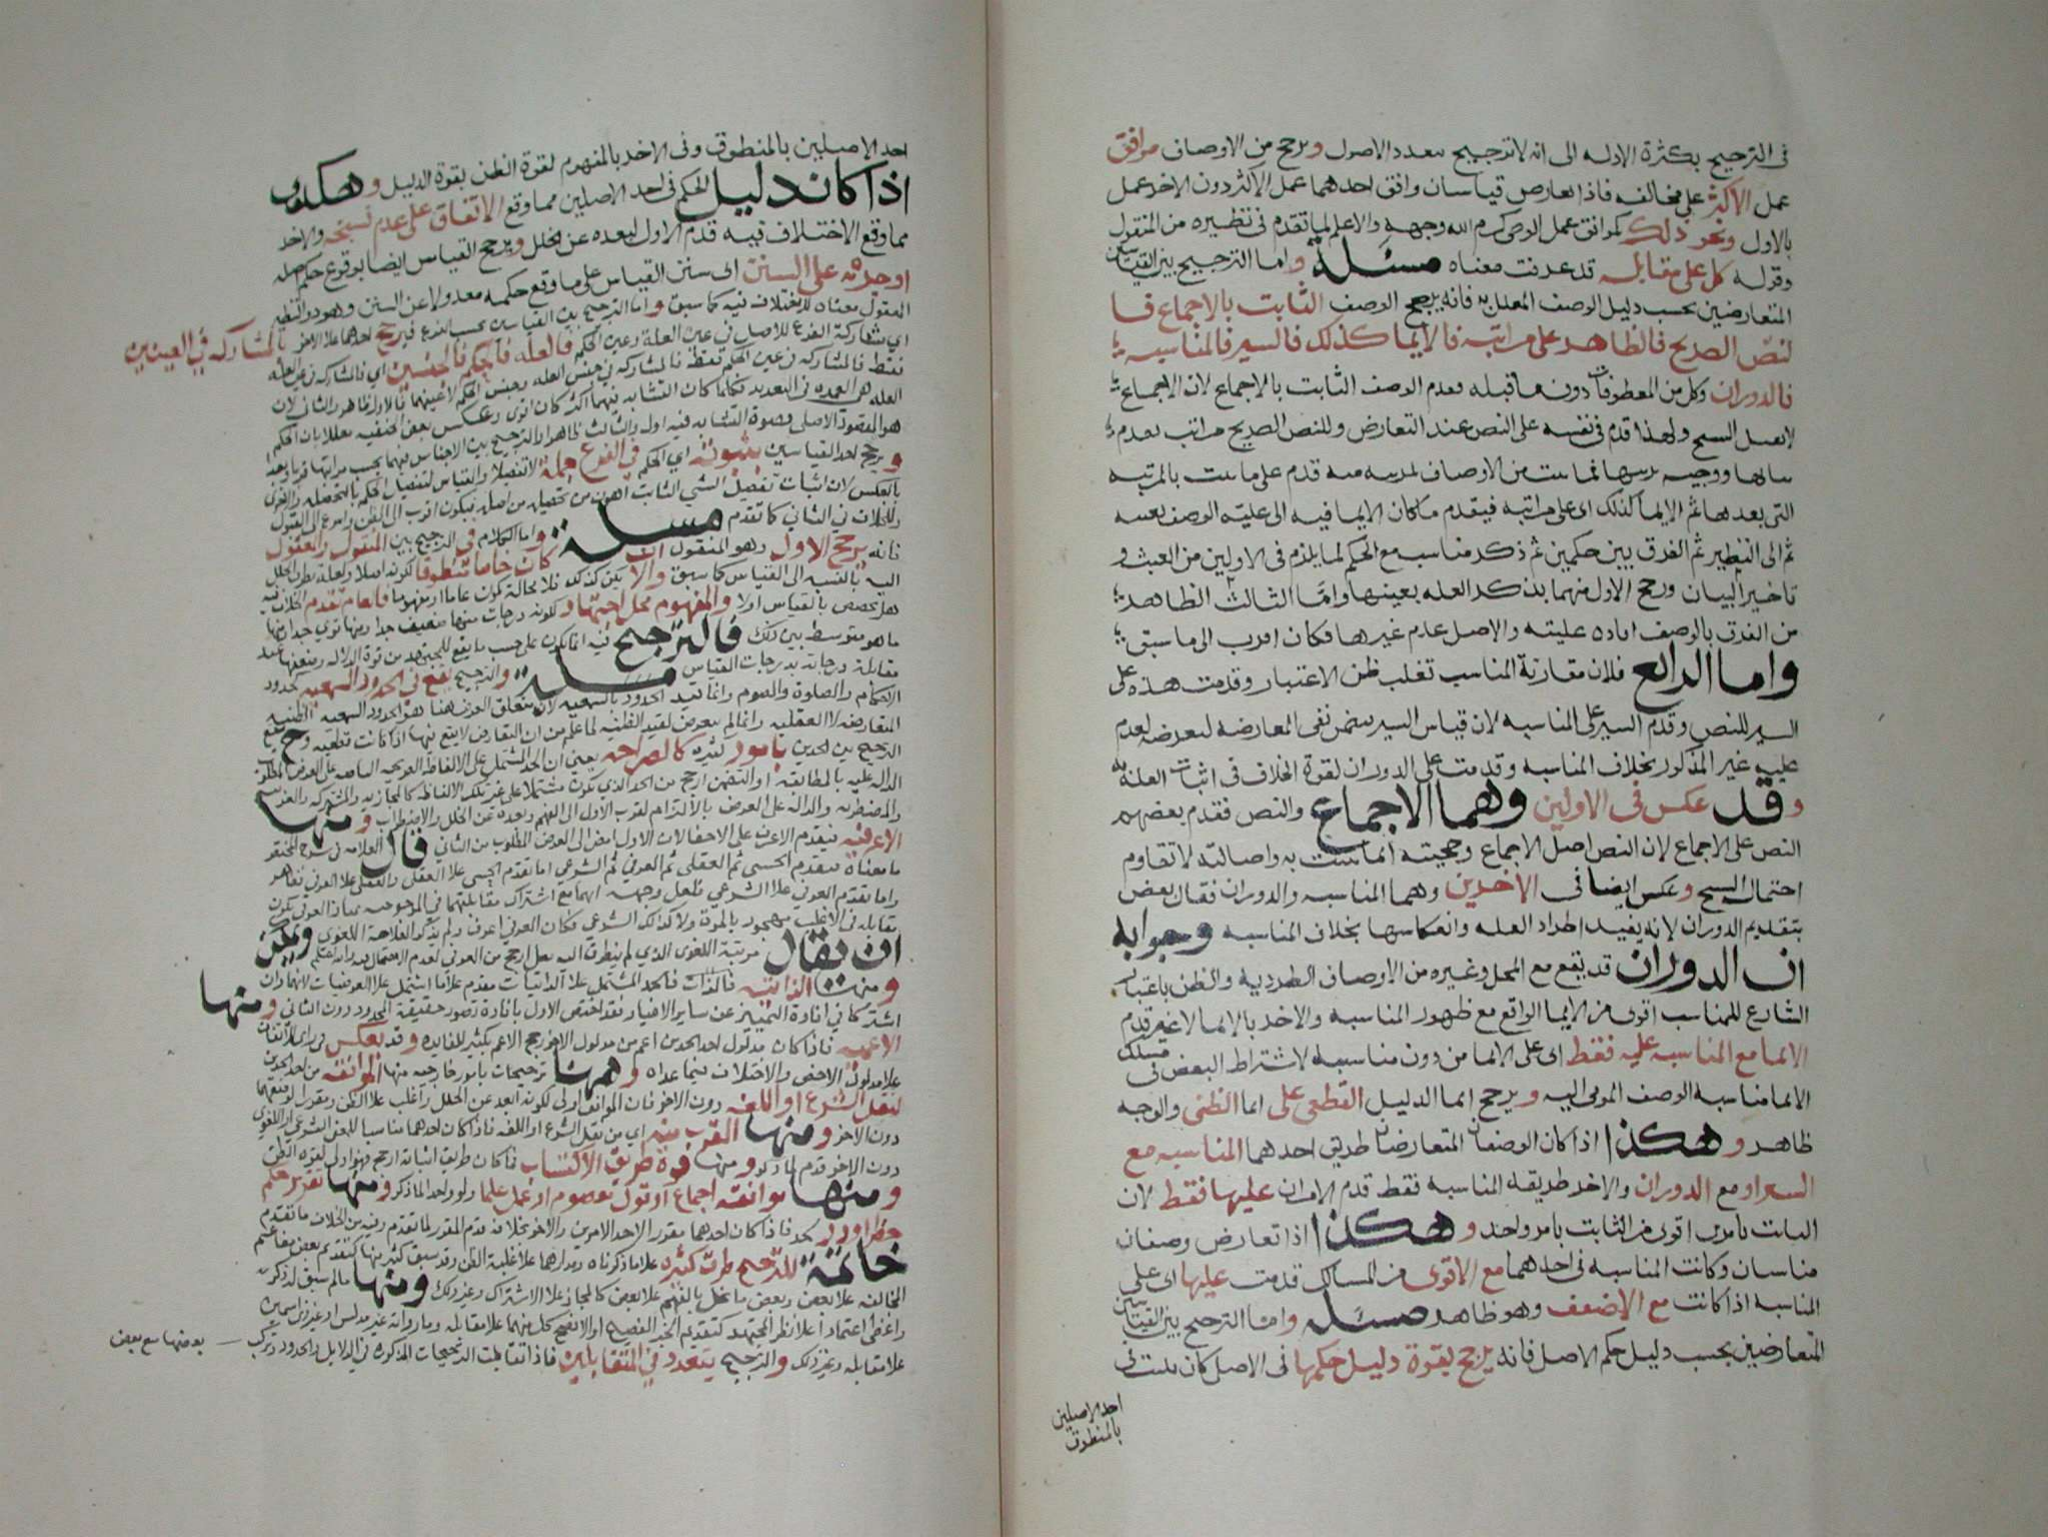 في الترجيح بكثرة الادله الى انه لا ترجيح بتعدد الاصول ويرجح من الاوصاف موافق
عمل الاكثر على مخالفه فاذا تعارض قياسان وافق احدهما عمل الاكثر دون الاخر عمل
بالاول ونحو ذلك كموافق عمل الوصي كرم الله وجهه والاعلم لما تقدم في نظيره من المنقول
وقوله كل على مقابله قد عرفت معناه مسئلة واما الترجيح بين القياسين
المتعارضين بحسب دليل الوصف المعلل به فانه يرجح الوصف الثابت بالاجماع فا
لنص الصريح فالظاهر على مراتبه فالايما كذلك فالسبر فالمناسبه
فالدوران وكل من المعطوفات دون ما قبله فقدم الوصف الثابت بالاجماع لان الاجماع
لا يقبل النسخ ولهذا قدم في نفسه على النص عند التعارض وللنص الصريح مراتب تقدم
التي بعدها ثم الايما كذلك اى على مراتبه فيقدم ما كان الايما فيه الى علية الوصف بعينه
ثم الى النظير ثم الفرق بين حكمين ثم ذكر مناسبه مع الحكم لما يلزم في الاولين من العبث و
تاخير البيان ورجح الاول منهما بذكر العله بعينها واما الثالث الظاهر
من الفرق بالوصف افاده عليته والاصل عدم غيرها فكان اقرب الى ما سبق
واما الرابع فلان مقارنة المناسب تغلب ظن الاعتبار وقدمت هذه على
السبر للنص وقدم السبر على المناسبه لان قياس السبر يتضمن نفي المعارضه لتعرضه لعدم
عليه غير المذكور بخلاف المناسبه وقدمت على الدوران لقوة الخلاف في اثبات العلة به
وقد عكس في الاولين وهما الاجماع والنص فقدم بعضهم
النص على الاجماع لان النص اصل الاجماع وحجيته انما ثبتت به واصالته لا تقاوم
احتمال النسخ وعكس ايضا في الاخرين وهما المناسبه والدوران فقال بعض
بتقديم الدوران لانه يفيد اطراد العله وانعكاسها بخلاف المناسبه وجوابه
ان الدوران قد يقع مع المحل وغيره من الاوصاف الطردية والظن باعتبار
الشارع للمناسب اقوى من الايما الواقع مع ظهور المناسبه والاخر بالايما لا غير قدم
الايما مع المناسبه عليه فقط اى على الايما من دون مناسبه لاشتراط البعض في مسلك
الايما مناسبة الوصف المومى اليه ويرجح ايما الدليل القطعى على ايما الظنى والوجه
ظاهر وهكذا اذا كان الوصفان المتعارضان طريق احدهما المناسبه مع
السبر او مع الدوران والاخر طريقه المناسبه فقط قدم الامران عليها فقط لان
الثابت بامرين اقوى من الثابت بامر واحد وهكذا اذا تعارض وصفان
مناسبان وكانت المناسبه في احدهما مع الاقوى من المسالك قدمت عليها اى على
المناسبه اذا كانت مع الاضعف وهو ظاهر مسئلة واما الترجيح بين القياسين
المتعارضين بحسب دليل حكم الاصل فانه يرجح لقوة دليل حكمها في الاصل كان يثبت في
احد الاصلين
بالمنطوق
احد الاصلين بالمنطوق وفى الاخر بالمفهوم لقوة الظن بقوة الدليل وهكذى
اذا كان دليل الحكم في احد الاصلين مما وقع الاتفاق على عدم نسخه والاخر
مما وقع الاختلاف فيه قدم الاول لبعده عن الخلل ويرجح القياس ايضا بوقوع حكم اصله
او جريه على السنن الى سنن القياس على ما وقع حكمه معدولا عن السنن وهو دوالنظير
المعقول معناه للاختلاف فيه كما سبق واما الترجيح بين القياسين بحسب الفرع فيرجح احدهما على الاخر بالمشاركه في العينين
اي بمشاركة الفرع للاصل في عين العلة وعين الحكم فالعله فالحكم فالجنسين اي فالمشاركه في عين العله
فقط فالمشاركه في عين الحكم فقط فالمشاركه في جنس العله وجنس الحكم لا عينهما فالاول ظاهر والثاني لان
العله هي العمده في التعديه فكلما كان التشابه فيهما اكثر كان اقوى وعكس بعض الحنفيه معللا بان الحكم
هو المقصود الاصلي وقصوة التشابه فيه اولى والثالث ظاهر والترجيح بين الاجناس فيهما بحسب مراتبها قربا وبعدا
ويرجح احد القياسين بثبوته اي الحكم في الفرع جملة لا تفصيلا والقياس لتفصيل الحكم لا لتحصيله والاخر
بالعكس لان اثبات تفصيل الشى الثابت اهون من تحصيله من اصله فيكون اقرب الى الظن واسرع الى القبول
وللخلاف في الثاني كما تقدم مسئلة واما الكلام في الترجيح بين المنقول والمعقول
فانه يرجح الاول وهو المنقول ان كان خاصا منطوقا لكونه اصلا ولقلة تطرق الخلل
اليه بالنسبه الى القياس كما سبق والا يكن كذلك فلا محالة يكون عاما او مفهوما فالعام تقدم الخلاف فيه
هل يخصص بالقياس اولا والمفهوم محل اجتهاد لكونه درجات منها ضعيف جدا ومنها قوي جدا ومنها
ما هو متوسط بين ذلك فالترجيح فيه انما يكون على حسب ما يقع للمجتهد من قوة الدلاله وضعفها عند
مقابلة درجاته بدرجات القياس مسئلة والترجيح يقع في الحدود السمعيه كحدود
الاحكام والصلوة والصوم وانما قيد الحدود بالسمعيه لان متعلق الغرض هنا هو الحدود السمعيه الظنيه
المتعارضه لا العقليه وانما لم يتعرض لقيد الظنيه لما علم من ان التعارض لا يقع فيها اذا كانت قطعيه وح يقع
الترجيح بين الحدين بامور كثيره كالصراحه يعني ان الحد المشتمل على الالفاظ الصريحه الناصه على الغرض المطلوب
الداله عليه بالمطابقه او التضمن ارجح من الحد الذي يكون مشتملا على غير تلك الالفاظ كالمجازيه والمشتركه والغريبه
والمضطربه والداله على الغرض بالالتزام لقرب الاول الى الفهم وبعده عن الخلل والاضطراب ومنها
الاعرفيه فيقدم الاعرف على الاخفى لان الاول افضى الى الغرض المطلوب من الثاني قال العلامه في شرح المختصر
ما معناه فيقدم الحسى ثم العقلى ثم العرفي ثم الشرعي اما تقدم الحسي على العقلى والعقلى على العرفي فظاهر
واما تقدم العرفي على الشرعي فلعل وجهه انهما مع اشتراك مقابلتهما في المرجوحيه بمجاز العرفي يكون
مقابله في الاغلب مهجور بالمرة ولا كذلك الشرعي فكان العرفي اعرف ولم يذكر العلامة اللغوى ويمكن
ان يقال مرتبة اللغوى الذي لم يتطرق اليه نقل ارجح من العرفي لعدم الاحتمال فيه والله اعلم
ومنها الذاتيه فالذات فالحد المشتمل على الذاتيات مقدم على ما اشتمل على العرضيات لانهما وان
اشتركا في افادة التمييز عن ساير الاغيار فقد اختص الاول بافادة تصور حقيقة المحدود دون الثاني ومنها
الاعميه فاذا كان مدلول احد الحدين اعم من مدلول الاخر رجح الاعم بكثير للفايده وقد يعكس فى راى للاتفاق
على مدلول الاخص والاختلاف فيما عداه وههنا ترجيحات بامور خارجيه منها الموافقه من احد الحدين
لنقل الشرع او اللغه دون الاخر فان الموافق اولى لكونه ابعد عن الخلل واغلب على الظن
دون الاخر ومنها القرب منه اي من نقل الشرع او اللغه فاذا كان احدهما مناسبا للنقل الشرعي او اللغوي
دون الاخر قدم لما ذكر ومنها قوة طريق الاكتساب فما كان طريق اثباته ارجح فهو اولى لقوة الظن
ومنها موافقة اجماع او قول معصوم او عمل علما ولو واحد لما ذكر ومنها تقرير حكم
حظر او درء كحد فاذا كان احدهما مقرر لاحد الامرين والاخر بخلافه قدم المقرر لما تقدم وفيه من الخلاف ما تقدم
خاتمة للترجيح طرق كثيره على ما ذكرناه ومدارها على غلبة الظن وقد سبق كثير منها كتقديم بعض مفاهيم
المخالفه على بعض وبعض ما يخل بالفهم على بعض كالمجاز على الاشتراك وغير ذلك ومنها ما لم يسبق لذكره
واغمض اعتمادا على نظر المجتهد كتقديم الخبر الفصيح او الافصح كل منهما على مقابله وما رواته غير مدلس او غير ذي اسمين
على مقابله وغير ذلك والترجيح يتعدد في المتقابلين فاذا تقابلت الترجيحات المذكوره في الدلايل والحدود وتركب بعضها مع بعض